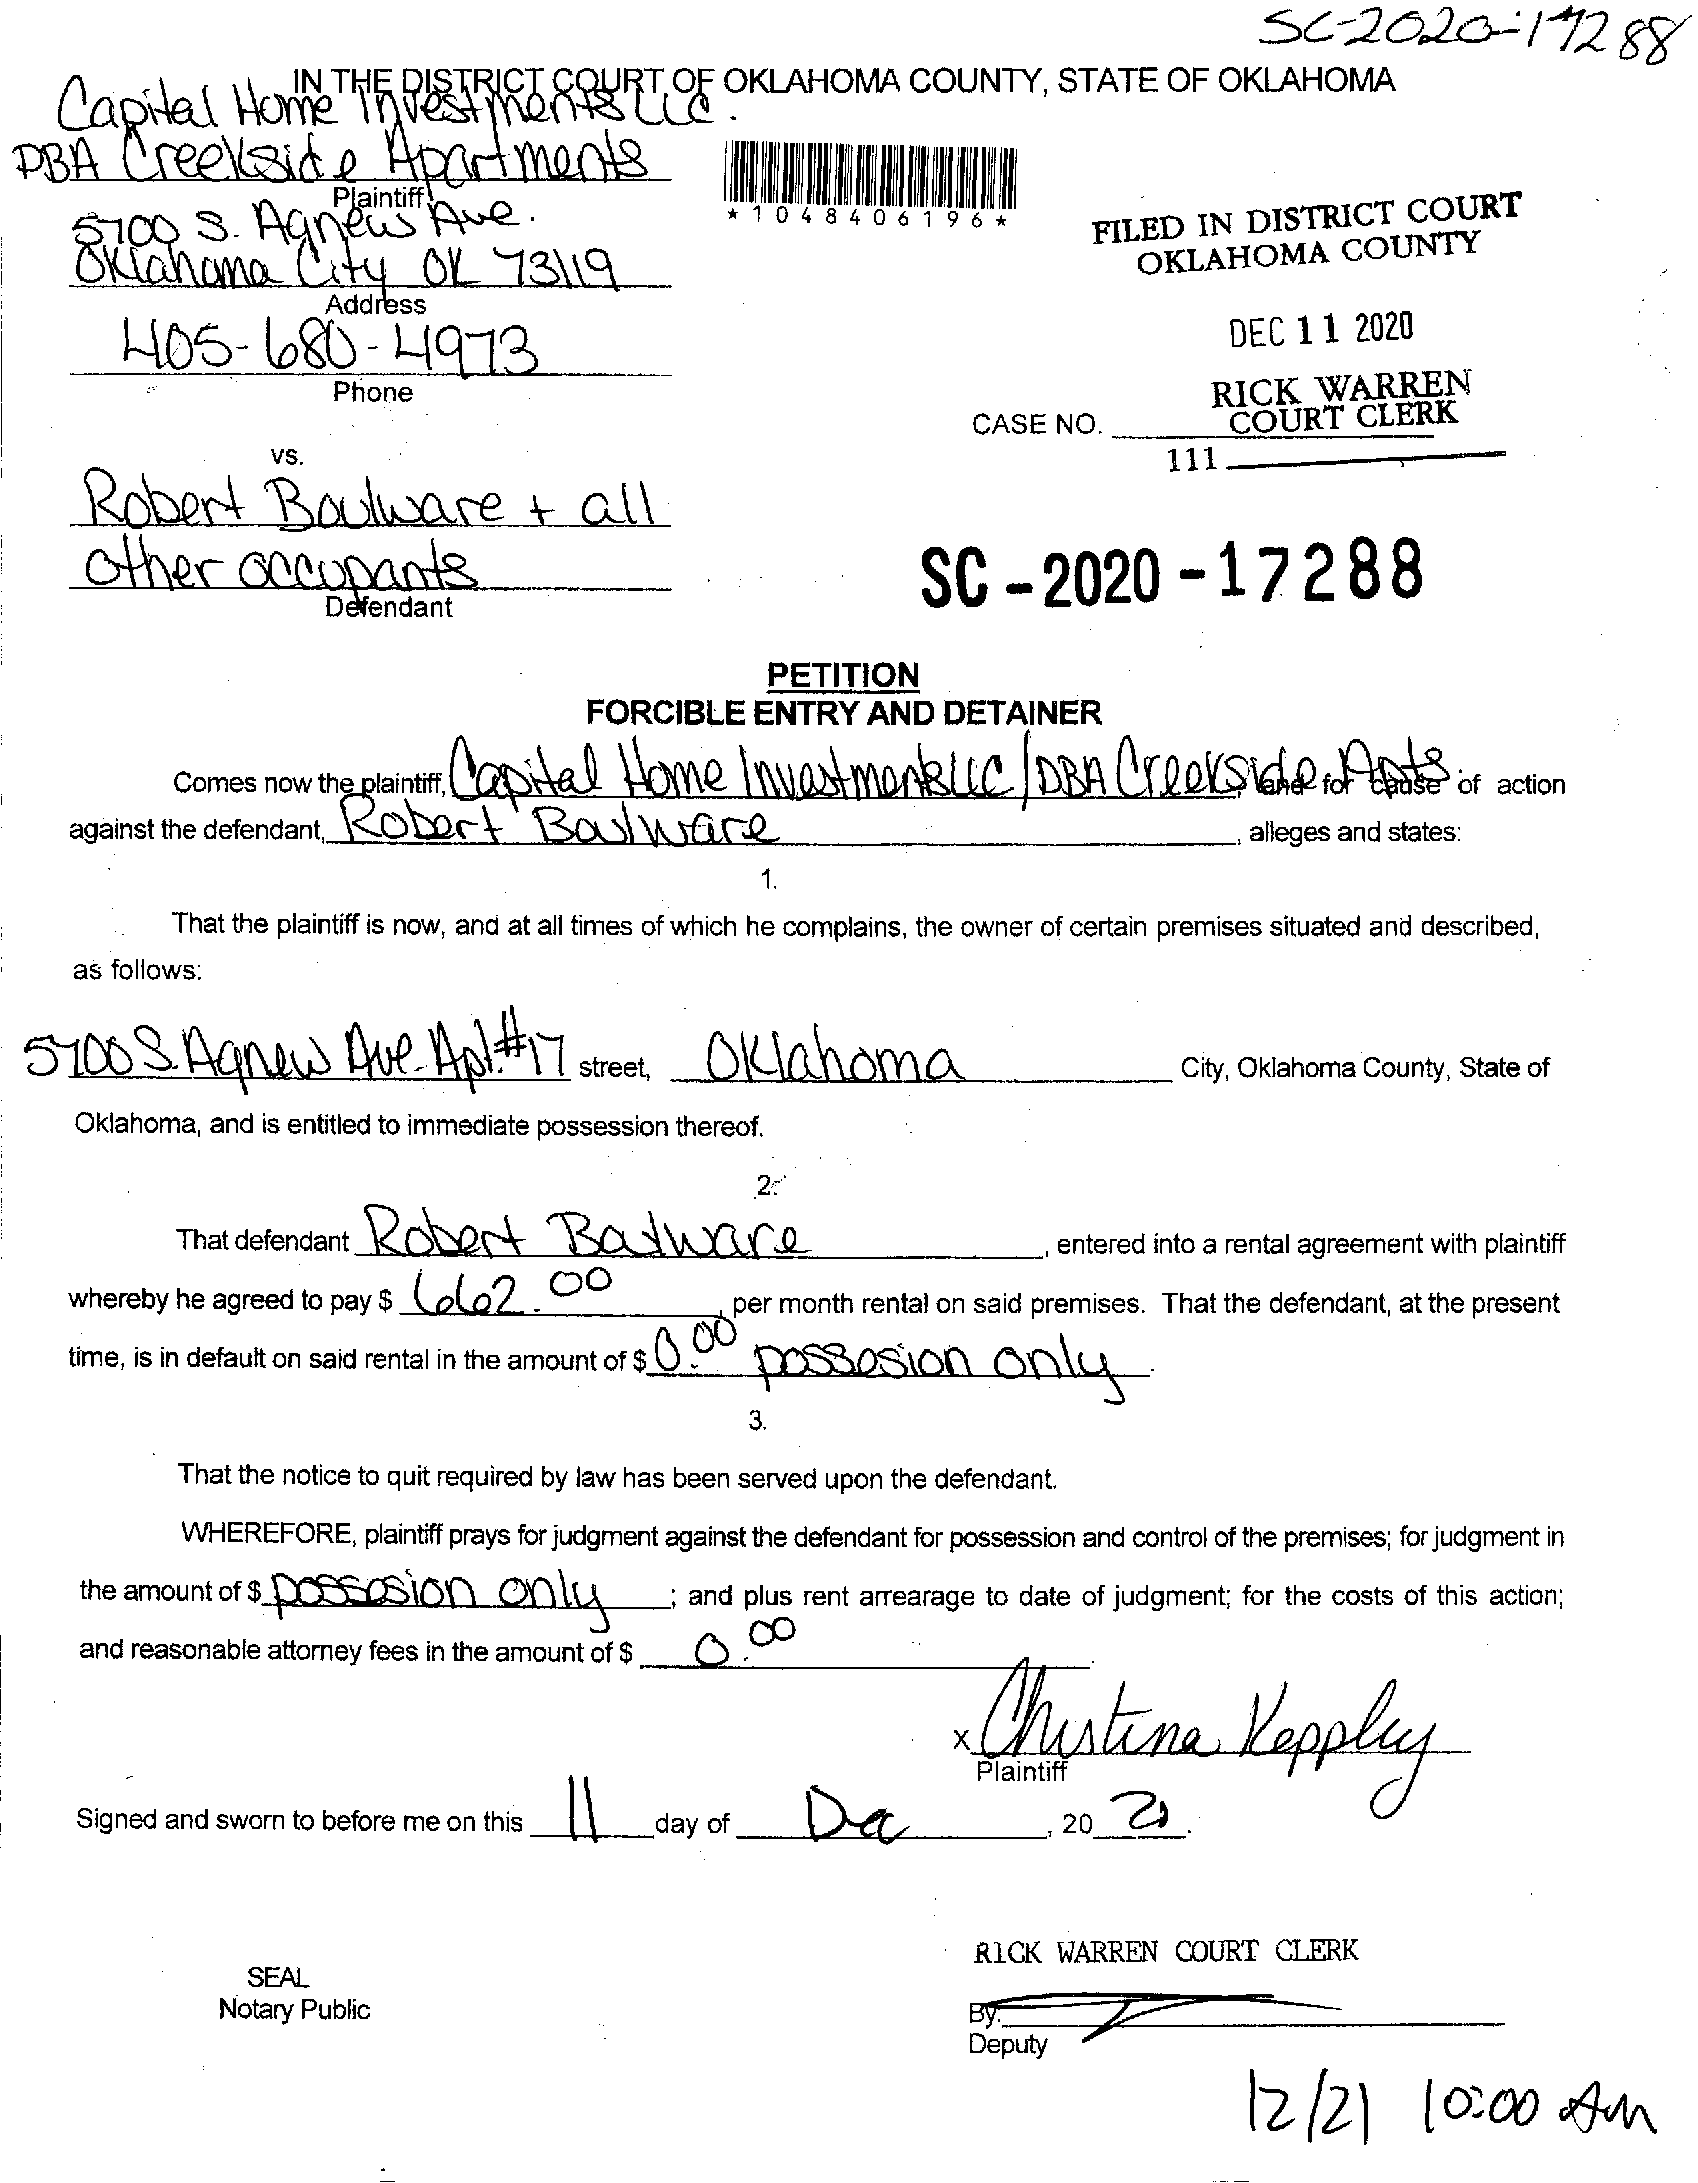 SC-2020-17288
IN THE DISTRICT COURT OF OKLAHOMA COUNTY, STATE OF OKLAHOMA
Capital Home Investments LLC.
DBA Creekside Apartments
Plaintiff
5700 S. Agnew Ave.
Oklahoma City OK 73119
Address
405-680-4973
Phone
*1048406196*
FILED IN DISTRICT COURT
OKLAHOMA COUNTY
DEC 11 2020
RICK WARREN
COURT CLERK
CASE NO.
111
vs.
Robert Boulware + all
other occupants
Defendant
SC-2020-17288
PETITION
FORCIBLE ENTRY AND DETAINER
Comes now the plaintiff, Capital Home Investments LLC/DBA Creekside Apts., and for cause of action
against the defendant, Robert Boulware, alleges and states:
1.
That the plaintiff is now, and at all times of which he complains, the owner of certain premises situated and described,
as follows:
5700 S. Agnew Ave. Apt. #17 street, Oklahoma City, Oklahoma County, State of
Oklahoma, and is entitled to immediate possession thereof.
2.
That defendant Robert Boulware, entered into a rental agreement with plaintiff
whereby he agreed to pay $ 662.00, per month rental on said premises. That the defendant, at the present
time, is in default on said rental in the amount of $ 0.00 possesion only.
3.
That the notice to quit required by law has been served upon the defendant.
WHEREFORE, plaintiff prays for judgment against the defendant for possession and control of the premises; for judgment in
the amount of $ possesion only; and plus rent arrearage to date of judgment; for the costs of this action;
and reasonable attorney fees in the amount of $ 0.00
x Christina Keppley
Plaintiff
Signed and sworn to before me on this 11 day of Dec, 20 20.
SEAL
Notary Public
RICK WARREN COURT CLERK
By:
Deputy
12/21 10:00 AM